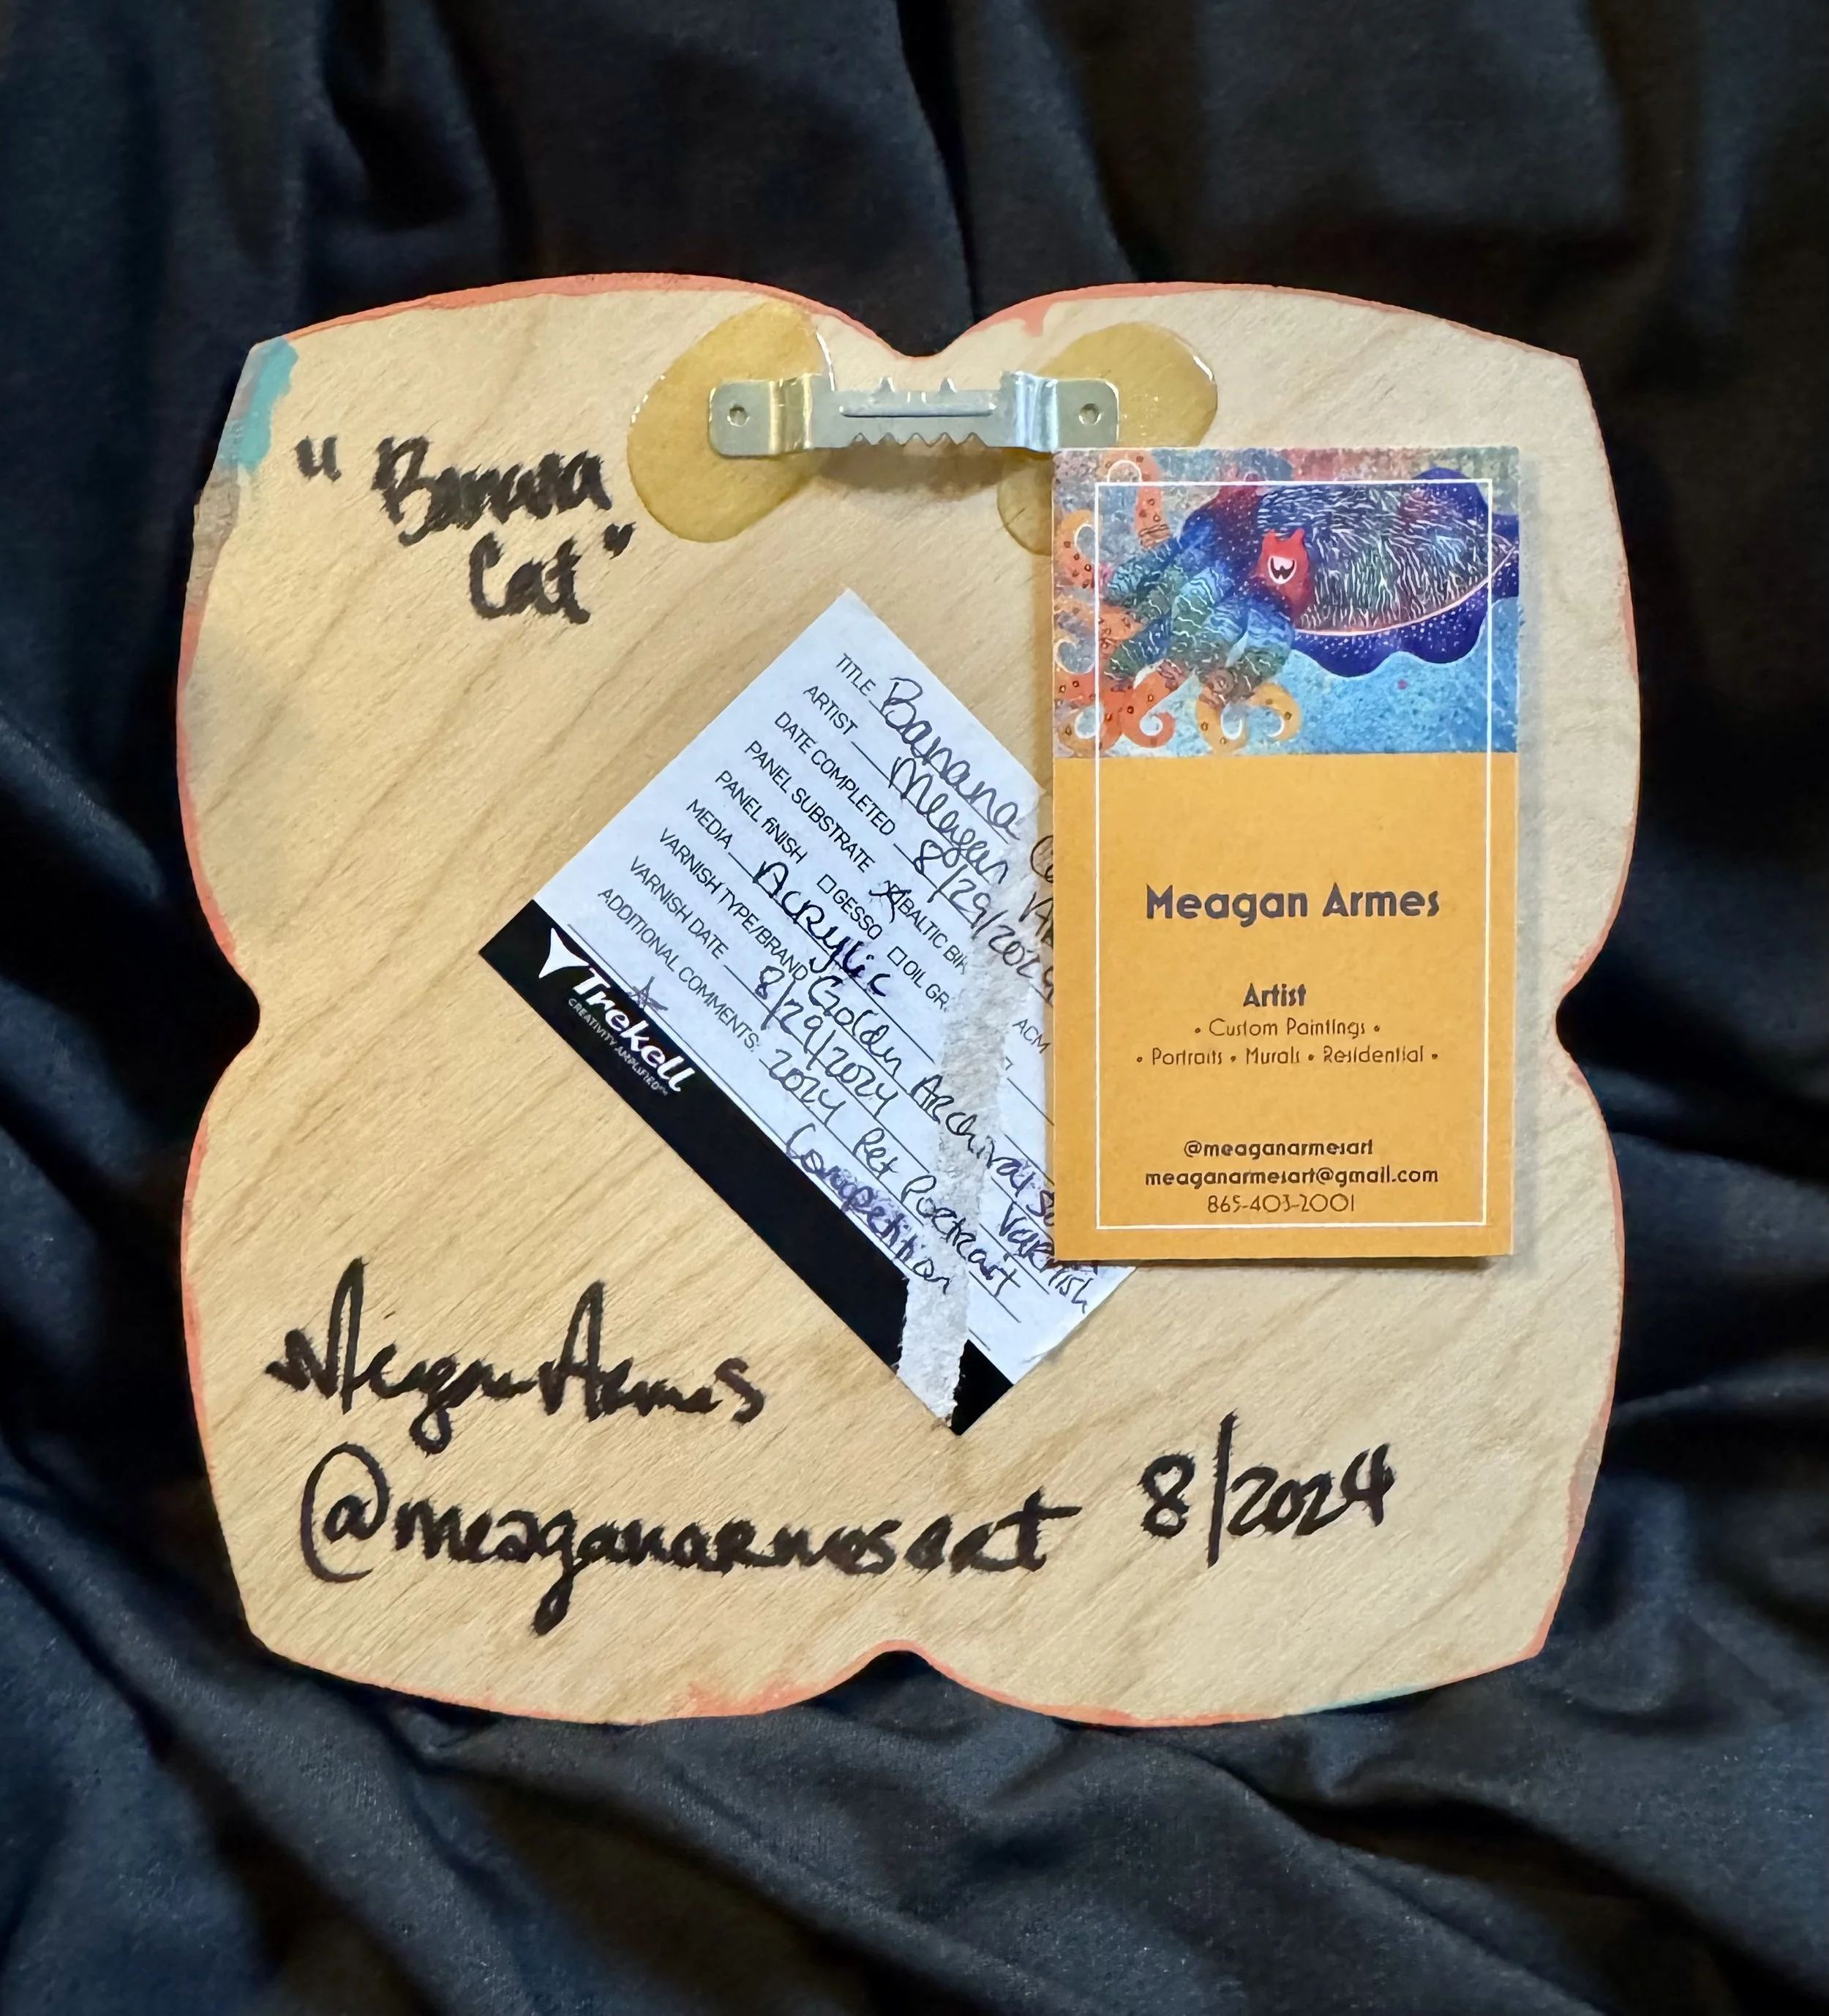 "Banana
Cat"
TITLE Banana
ARTIST Meagan
DATE COMPLETED 8/29/2024
PANEL SUBSTRATE BALTIC
PANEL FINISH GESSO OIL
ACM
MEDIA Acrylic
VARNISH TYPE/BRAND Golden Archival
Varnish
VARNISH DATE 8/29/2024
ADDITIONAL COMMENTS: 2024 Pet Portrait
Competition
Trekell
CREATIVITY AMPLIFIED
Meagan Armes
Artist
• Custom Paintings •
• Portraits • Murals • Residential •
@meaganarmesart
meaganarmesart@gmail.com
865-403-2001
Meagan Armes
@meaganarmesart 8/2024